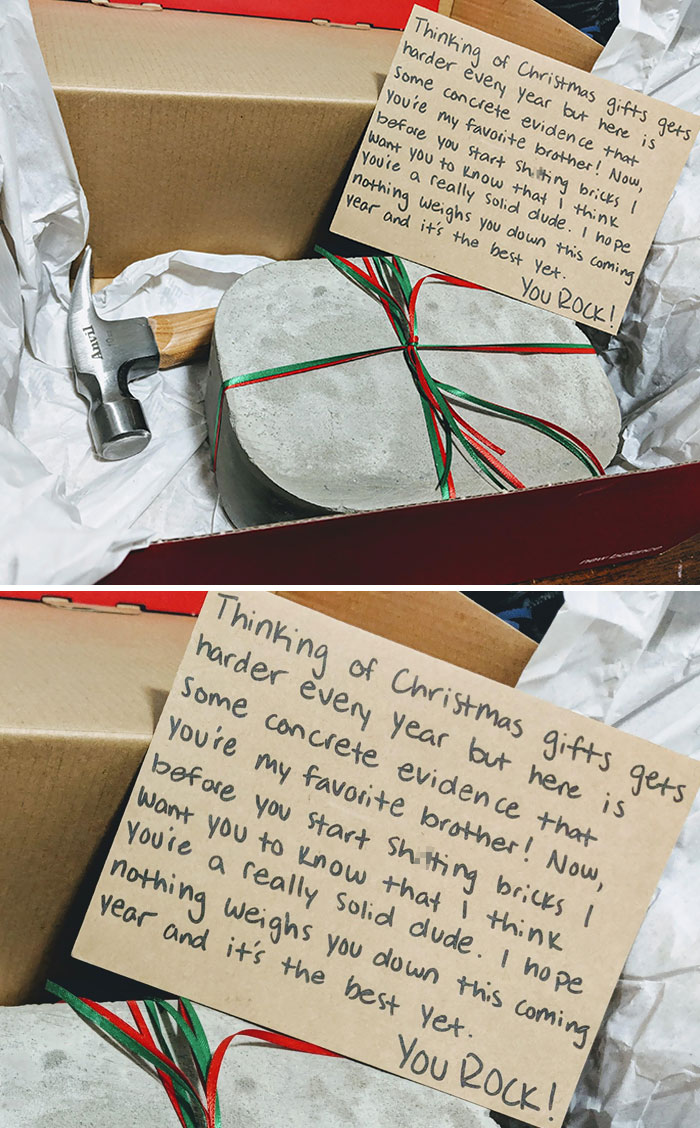 Thinking of Christmas gifts gets
harder every year but here is
some concrete evidence that
you're my favorite brother! Now,
before you start sh tting bricks I
want you to know that I think
you're a really solid dude. I hope
nothing weighs you down this coming
year and it's the best yet.
You ROCK!
Anvil
new balance
Thinking of Christmas gifts gets
harder every year but here is
some concrete evidence that
you're my favorite brother! Now,
before you start sh tting bricks I
want you to know that I think
you're a really solid dude. I hope
nothing weighs you down this coming
year and it's the best yet.
You ROCK!